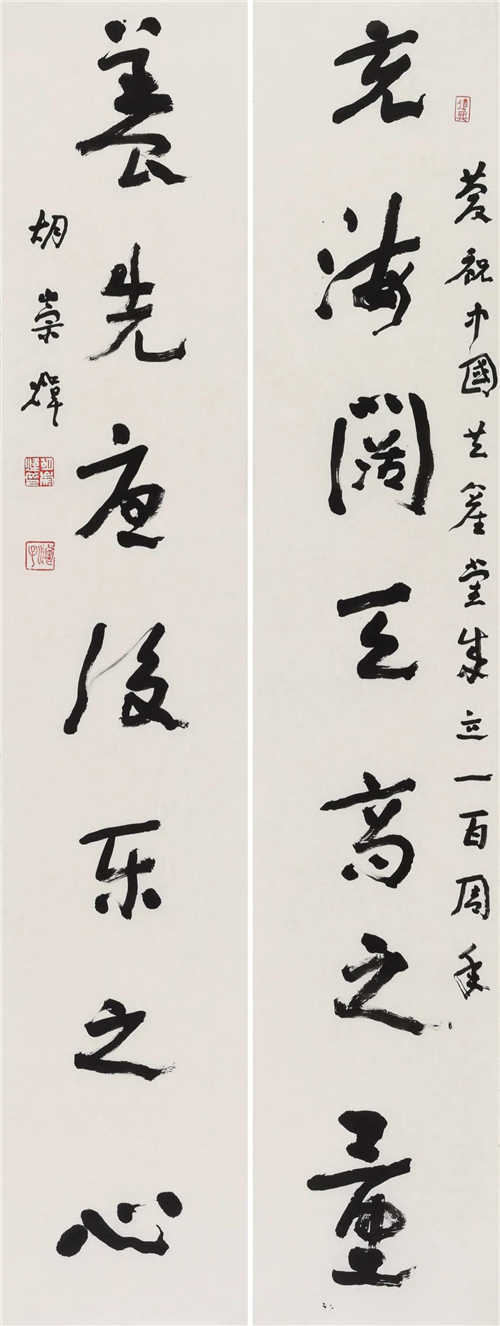 慶祝中國共產黨成立一百周年
充海闊天高之量
養先憂後樂之心
胡崇煒